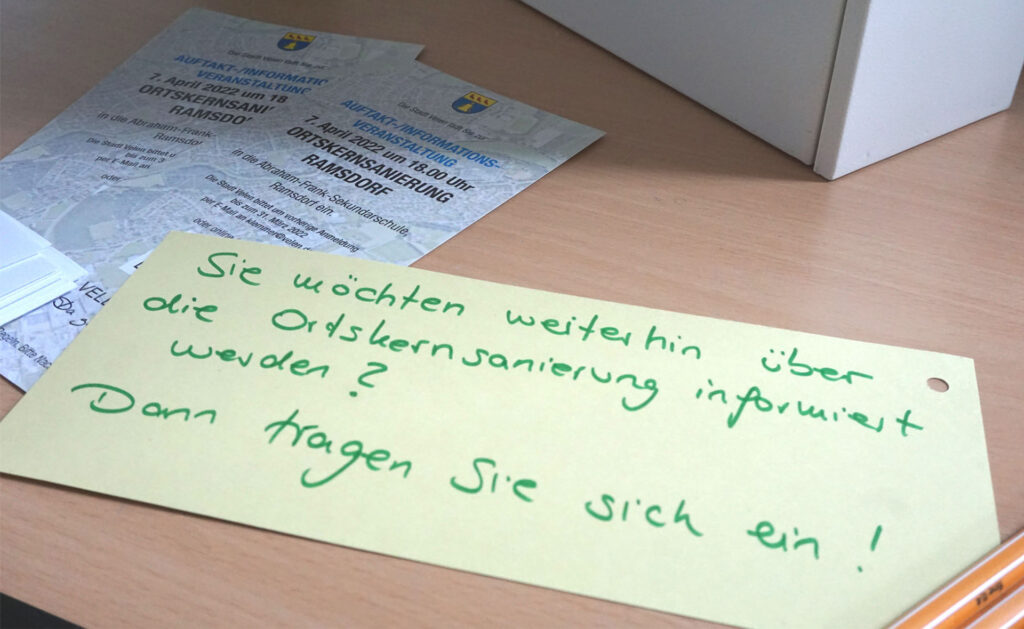 Die Stadt Velen lädt Sie zur
AUFTAKT-/INFORMATIO
VERANSTALTUNG
7. April 2022 um 18
ORTSKERNSANI
RAMSDO
in die Abraham-Frank-
Ramsdo
Die Stadt Velen bittet u
bis zum 3
per E-Mail an
oder
Die Stadt Velen lädt Sie zur
AUFTAKT-/INFORMATIONS-
VERANSTALTUNG
7. April 2022 um 18.00 Uhr
ORTSKERNSANIERUNG
RAMSDORF
in die Abraham-Frank-Sekundarschule,
Ramsdorf ein.
Die Stadt Velen bittet um vorherige Anmeldung
bis zum 31. März 2022
per E-Mail an klemthner@velen.d
oder online
VELE
Sie möchten weiterhin über
die Ortskernsanierung informiert
werden?
Dann tragen Sie sich ein!